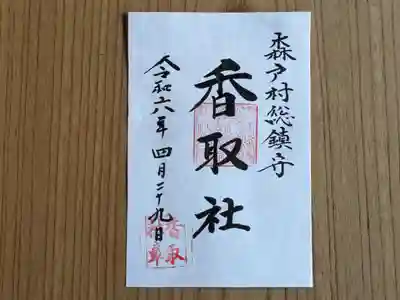 森戸村総鎮守
香取社
令和六年 四月二十九日